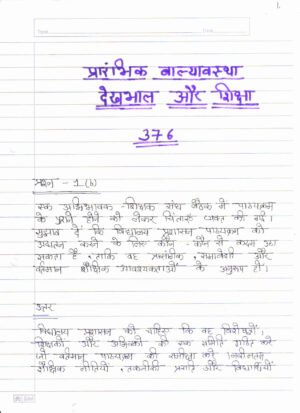 प्रारंभिक बाल्यावस्था
देखभाल और शिक्षा
376
प्रश्न - 1 (b)
एक अभिभावक - शिक्षक संघ बैठक में पाठ्यक्रम
के पुराने होने को लेकर चिंताएँ व्यक्त की गई।
सुझाव दें कि विद्यालय प्रशासन पाठ्यक्रम को
अद्यतन करने के लिए कौन - कौन से कदम उठा
सकता है, ताकि वह प्रासंगिक, समावेशी और
वर्तमान शैक्षिक आवश्यकताओं के अनुरूप हो।
उत्तर
विद्यालय प्रशासन को चाहिए कि वह विशेषज्ञों,
शिक्षकों और अभिभावकों की एक समिति गठित करे
जो वर्तमान पाठ्यक्रम की समीक्षा करे। नवीनतम
शैक्षिक नीतियों, तकनीकी प्रगति और विद्यार्थियों